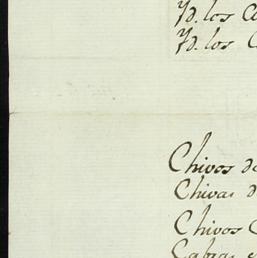 Yd. los
Yd. los
Chivos de
Chivas d
Chivos
Cabras